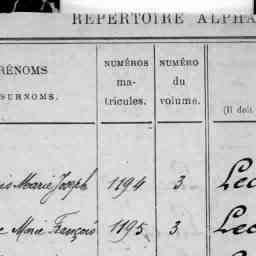 REPERTOIRE ALPHA
RÉNOMS
SURNOMS.
NUMÉROS
ma-
tricules.
NUMÉRO
du
volume.
(Il doit
is Marie Joseph 1194 3 Lec
e Marie François 1195 3 Lec